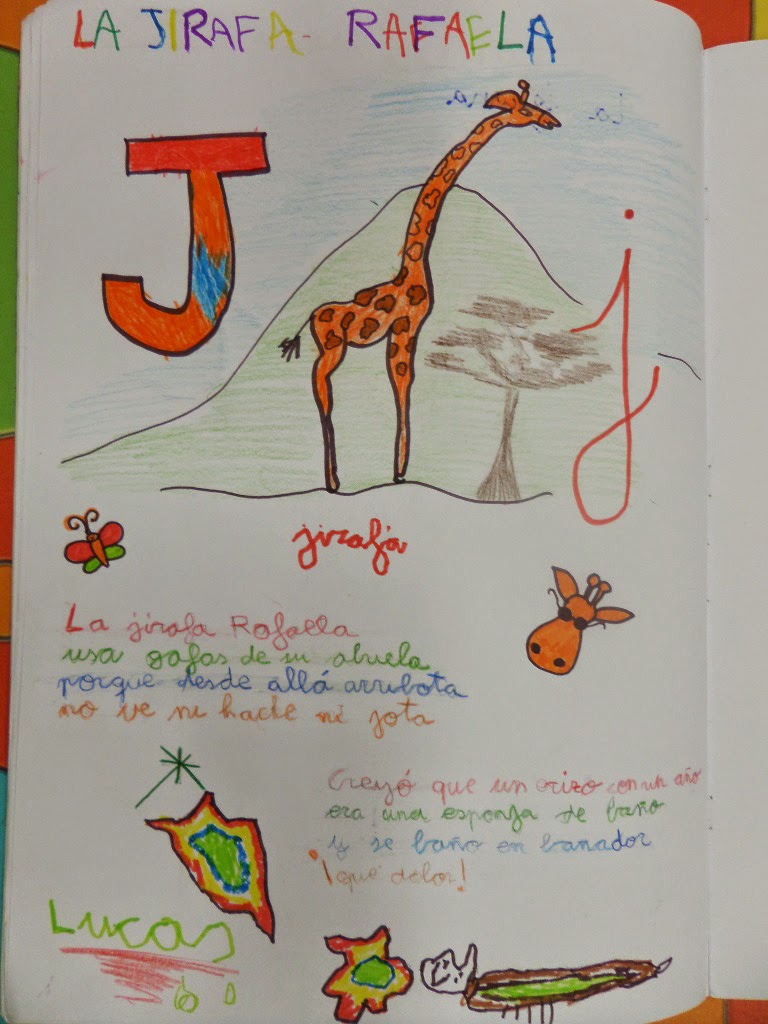 LA JIRAFA- RAFAELA
J
j
jirafa
La jirafa Rafaela
usa gafas de su abuela
porque desde allá arribota
no ve ni hache ni jota
Creyó que un erizo con un año
era una esponja de baño
y se baño en bañador
¡que dolor!
Lucas